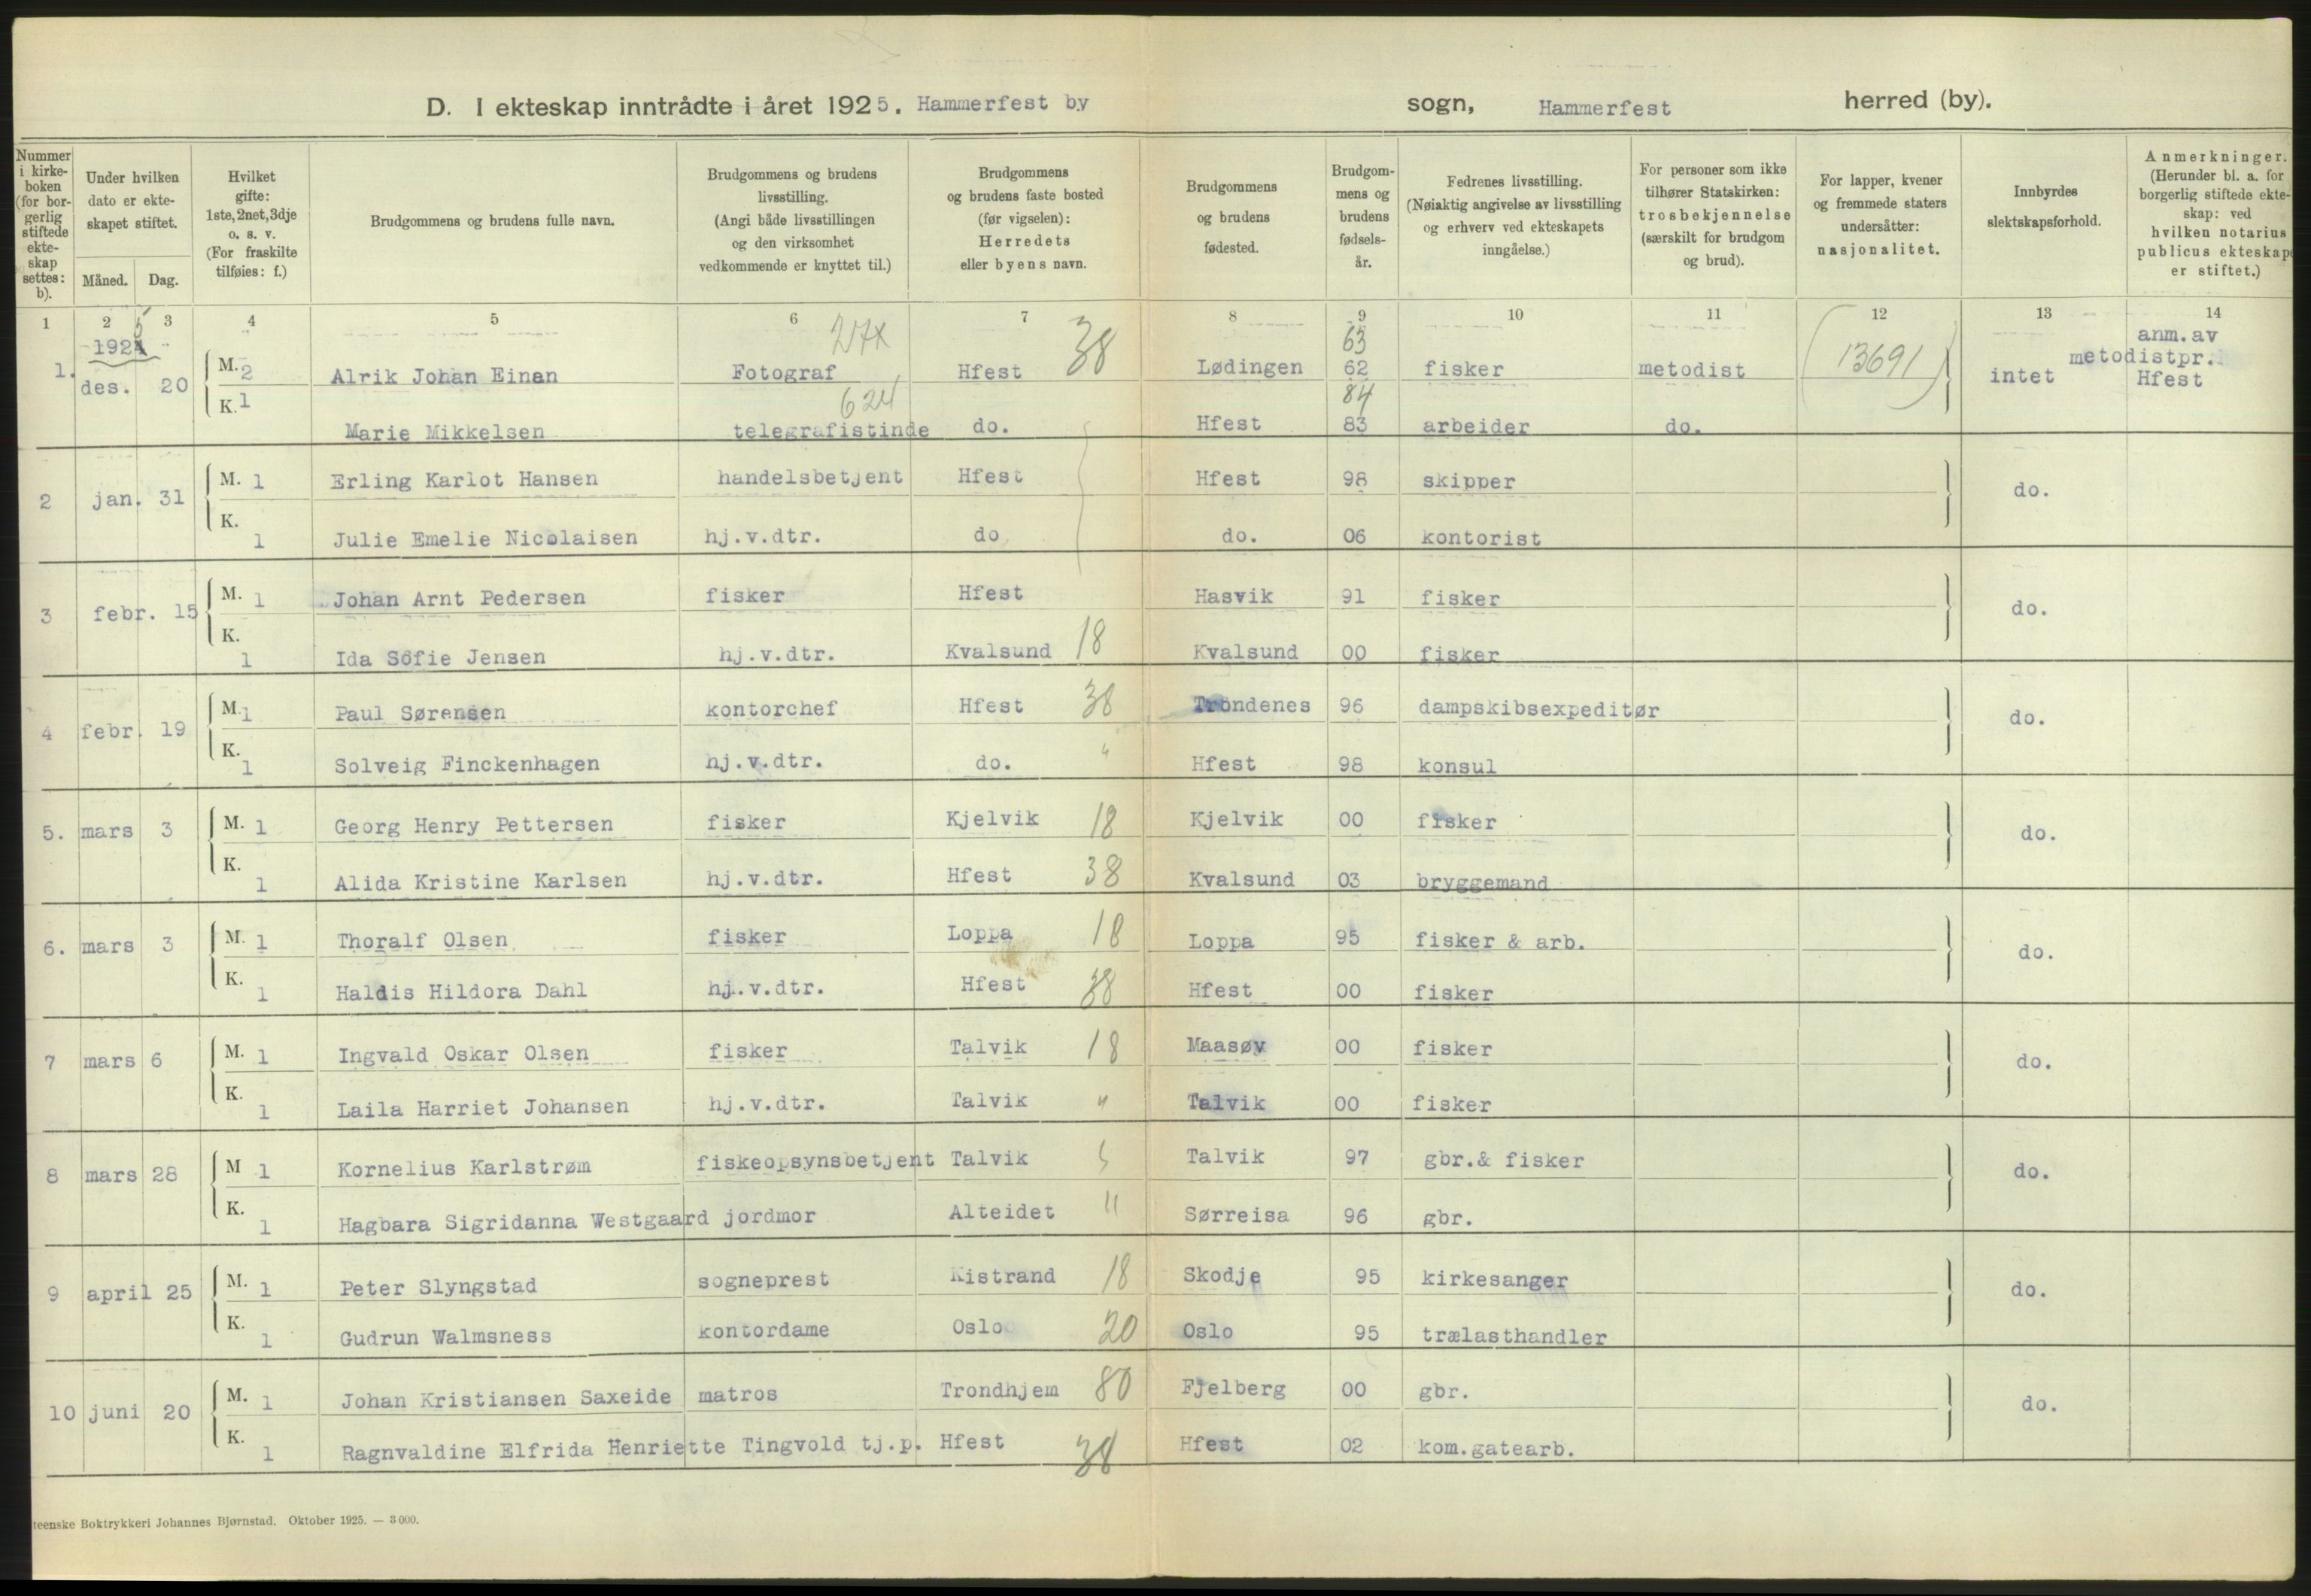 D. I ekteskap inntrådte i året 1925. Hammerfest by sogn, Hammerfest herred (by).
Nummer i kirke-boken (for bor-gerlig stiftede ekte-skap settes: b).
Under hvilken dato er ekte-skapet stiftet.
Måned. Dag.
Hvilket gifte: 1ste, 2net, 3dje o. s. v. (For fraskilte tilføies: f.)
Brudgommens og brudens fulle navn.
Brudgommens og brudens livsstilling. (Angi både livsstillingen og den virksomhet vedkommende er knyttet til.)
Brudgommens og brudens faste bosted (før vigselen): Herredets eller byens navn.
Brudgommens og brudens fødested.
Brudgom-mens og brudens fødsels-år.
Fedrenes livsstilling. (Nøiaktig angivelse av livsstilling og erhverv ved ekteskapets inngåelse.)
For personer som ikke tilhører Statskirken: trosbekjennelse (særskilt for brudgom og brud).
For lapper, kvener og fremmede staters undersåtter: nasjonalitet.
Innbyrdes slektskapsforhold.
Anmerkninger. (Herunder bl. a. for borgerlig stiftede ekte-skap: ved hvilken notarius publicus ekteskap er stiftet.)
1 2 3 4 5 6 7 8 9 10 11 12 13 14
1924 5 217x 38 63 13691 anm.av
metodistpr.
1. des. 20 M. 2 Alrik Johan Einan Fotograf Hfest Lødingen 62 fisker metodist intet Hfest
624 84
K. 1 Marie Mikkelsen telegrafistinde do. Hfest 83 arbeider do.
2 jan. 31 M. 1 Erling Karlot Hansen handelsbetjent Hfest Hfest 98 skipper do.
K. 1 Julie Emelie Nicolaisen hj.v.dtr. do do. 06 kontorist
3 febr. 15 M. 1 Johan Arnt Pedersen fisker Hfest Hasvik 91 fisker do.
K. 1 Ida Sofie Jensen hj.v.dtr. Kvalsund 18 Kvalsund 00 fisker
4 febr. 19 M. 1 Paul Sørensen kontorchef Hfest 38 Trondenes 96 dampskibsexpeditør do.
K. 1 Solveig Finckenhagen hj.v.dtr. do. " Hfest 98 konsul
5. mars 3 M. 1 Georg Henry Pettersen fisker Kjelvik 18 Kjelvik 00 fisker do.
K. 1 Alida Kristine Karlsen hj.v.dtr. Hfest 38 Kvalsund 03 bryggemand
6. mars 3 M. 1 Thoralf Olsen fisker Loppa 18 Loppa 95 fisker & arb. do.
K. 1 Haldis Hildora Dahl hj.v.dtr. Hfest 38 Hfest 00 fisker
7 mars 6 M. 1 Ingvald Oskar Olsen fisker Talvik 18 Maasøy 00 fisker do.
K. 1 Laila Harriet Johansen hj.v.dtr. Talvik " Talvik 00 fisker
8 mars 28 M 1 Kornelius Karlstrøm fiskeopsynsbetjent Talvik Talvik 97 gbr.& fisker do.
K. 1 Hagbara Sigridanna Westgaard jordmor Alteidet " Sørreisa 96 gbr.
9 april 25 M. 1 Peter Slyngstad sogneprest Kistrand 18 Skodje 95 kirkesanger do.
K. 1 Gudrun Walmsness kontordame Oslo 20 Oslo 95 trælasthandler
10 juni 20 M. 1 Johan Kristiansen Saxeide matros Trondhjem 80 Fjelberg 00 gbr. do.
K. 1 Ragnvaldine Elfrida Henriette Tingvold tj.p. Hfest 38 Hfest 02 kom.gatearb.
teenske Boktrykkeri Johannes Bjørnstad. Oktober 1925. — 3 000.